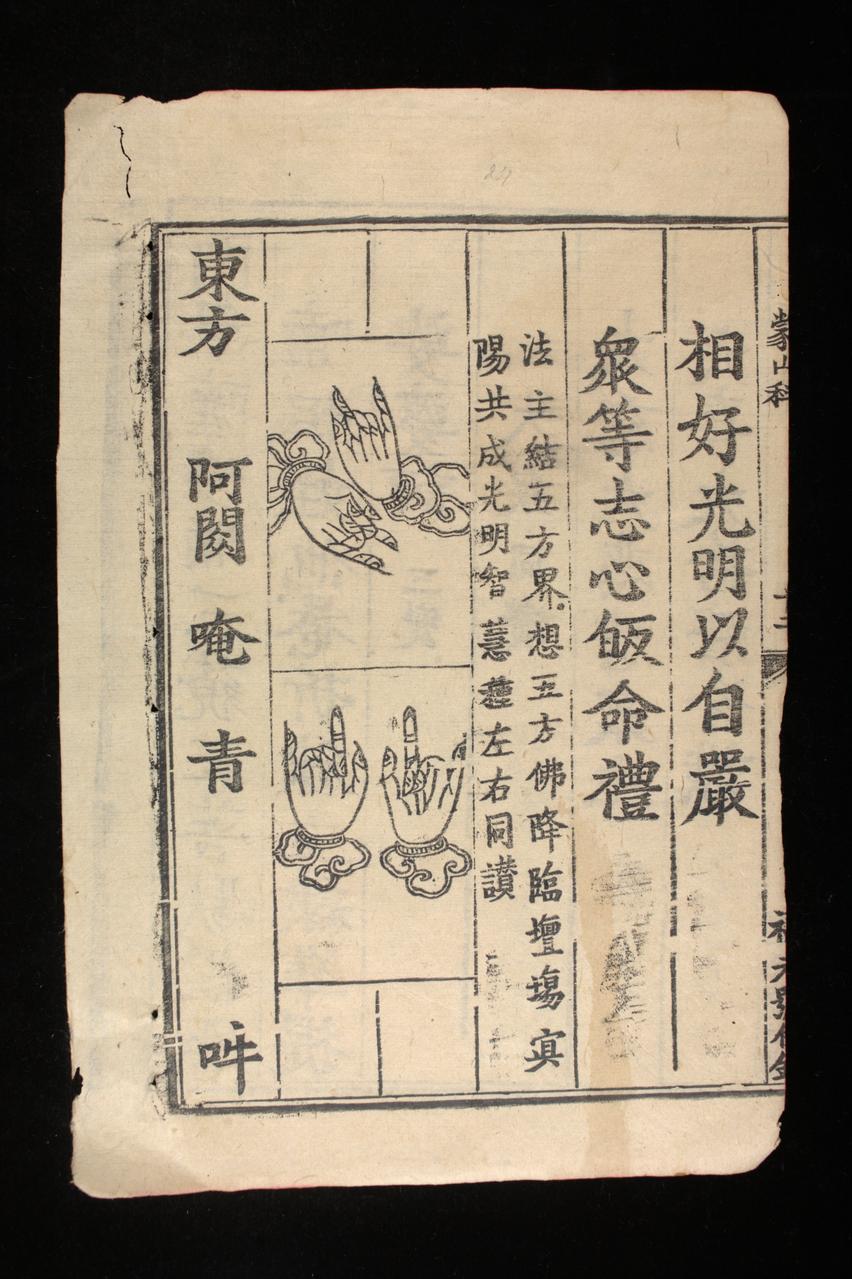 蒙山科
相好光明以自嚴
衆等志心皈命禮
法主結五方界。想五方佛降臨壇場寅
陽共成光明智慧種左右同讃
東方 阿閦 唵 青 吽